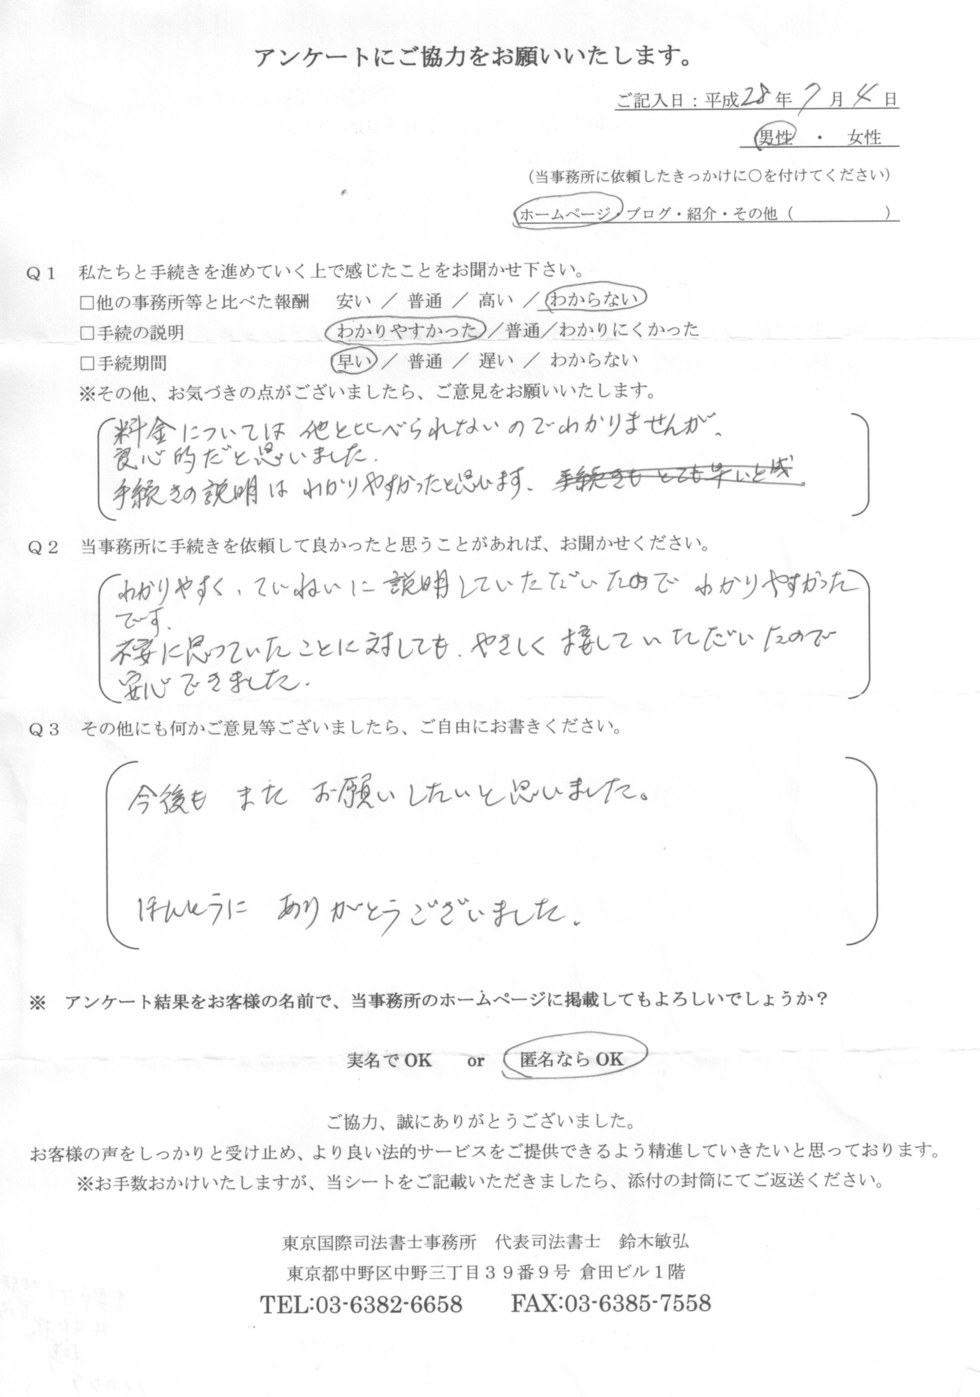 アンケートにご協力をお願いいたします。
ご記入日：平成28年7月4日
男性 ・ 女性
（当事務所に依頼したきっかけに○を付けてください）
ホームページ・ブログ・紹介・その他（　　　　　）
Ｑ１　私たちと手続きを進めていく上で感じたことをお聞かせ下さい。
□他の事務所等と比べた報酬　安い ／ 普通 ／ 高い ／ わからない
□手続の説明　わかりやすかった／普通／わかりにくかった
□手続期間　早い ／ 普通 ／ 遅い ／ わからない
※その他、お気づきの点がございましたら、ご意見をお願いいたします。
料金については他と比べられないのでわかりませんが、
良心的だと思いました.
手続きの説明はわかりやすかったと思います. 手続きもとても早いと
Ｑ２　当事務所に手続きを依頼して良かったと思うことがあれば、お聞かせください。
わかりやすく、ていねいに説明していただいたので わかりやすかった
です.
不安に思っていたことに対しても、やさしく接していただいたので
安心できました.
Ｑ３　その他にも何かご意見等ございましたら、ご自由にお書きください。
今後も また お願いしたいと思いました。
ほんとうに ありがとうございました.
※　アンケート結果をお客様の名前で、当事務所のホームページに掲載してもよろしいでしょうか？
実名でOK　or　匿名ならOK
ご協力、誠にありがとうございました。
お客様の声をしっかりと受け止め、より良い法的サービスをご提供できるよう精進していきたいと思っております。
※お手数おかけいたしますが、当シートをご記載いただきましたら、添付の封筒にてご返送ください。
東京国際司法書士事務所　代表司法書士　鈴木敏弘
東京都中野区中野三丁目３９番９号 倉田ビル１階
TEL:03-6382-6658　FAX:03-6385-7558